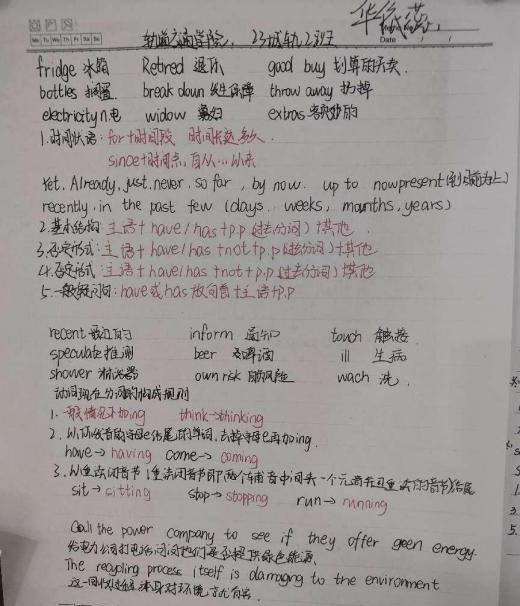 Mo Tu We Th Fr Sa Su
Date
轨道交通学院, 23城轨2班
fridge 冰箱 Retired 退休 good buy 划算的买卖
bottles 瓶 break down 发生故障 throw away 扔掉
electricity n电 widow 寡妇 extras 额外的
1.时间状语: for+时间段 时间长达多久.
since+时间点, 自从…以来
Yet. Already, just. never. so far, by now. up to now present(到目前为止)
recently, in the past few (days. weeks, mounths, years)
2.基本结构: 主语+ have/has+p.p (过去分词)+其他.
3.否定形式: 主语+ have/has +not+p.p (过去分词)+其他
4.否定形式: 主语+ have/has +not+p.p (过去分词)+其他
5.一般疑问句: have或has放句首+主语+p.p
recent 最近的 inform 通知 touch 触摸
speculate 推测 beer 啤酒 ill 生病
shower 淋浴器 own risk 风险 wach 洗.
动词现在分词的构成规则
1.一般情况下加ing think→thinking
2.以不发音的字母e结尾的单词,去掉字母e再加ing.
have→ having come→ coming
3.以重读闭音节(重读闭音节即两个辅音中间夹一个元音并且重读的音节)结尾
sit→ sitting stop→ stopping run→ running
Call the power company to see if they offer geen energy.
给电力公司打电话问问他们是否提供绿色能源.
The recycling process itself is damaging to the environment
这一回收过程本身对环境就有害.